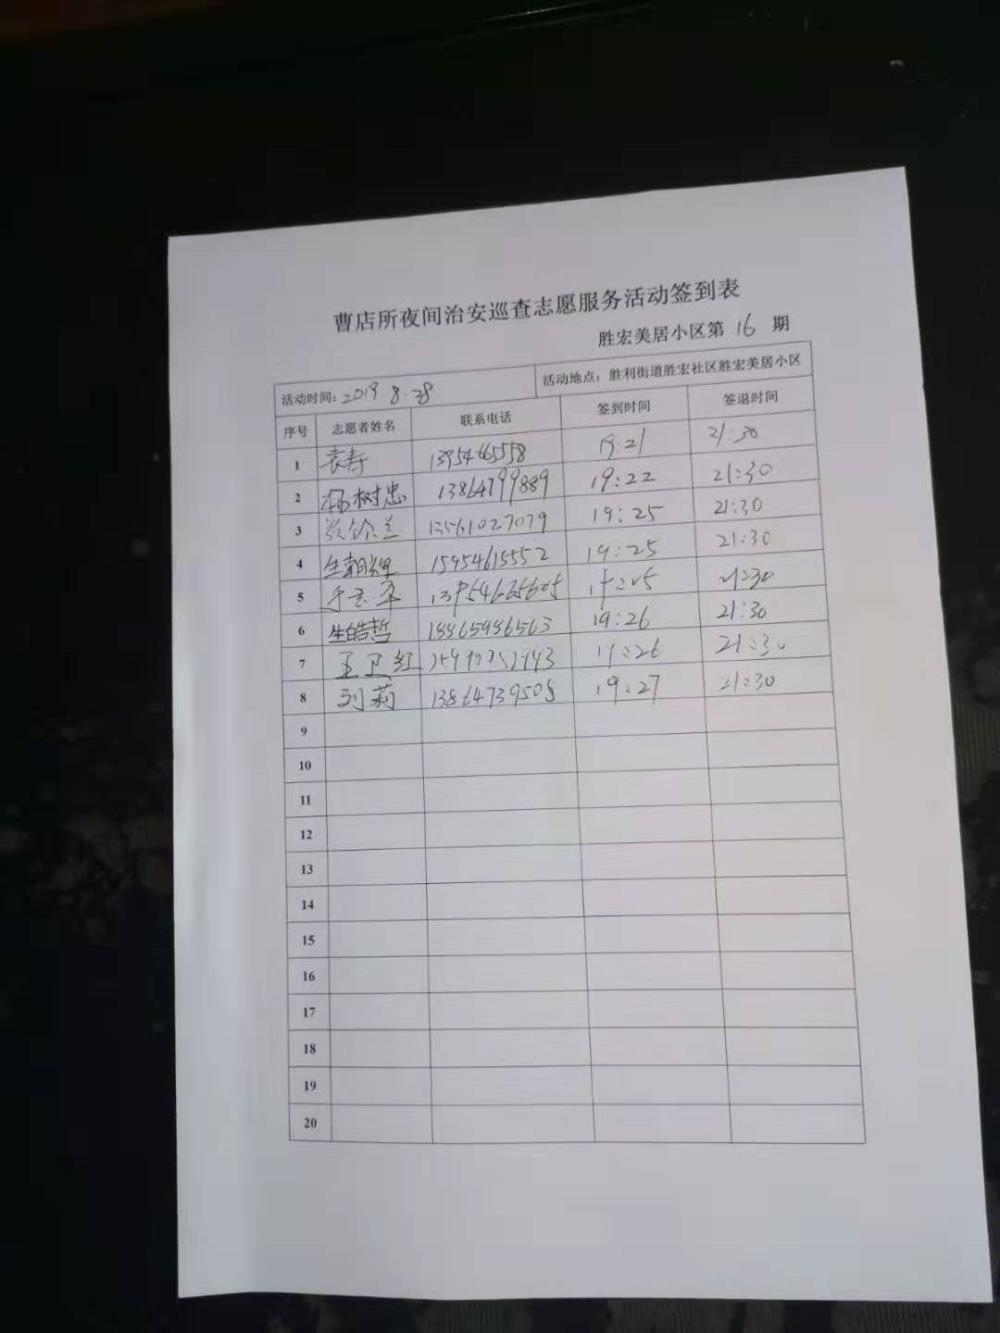 曹店所夜间治安巡查志愿服务活动签到表
胜宏美居小区第 16 期
活动时间：2019 8.28 活动地点：胜利街道胜宏社区胜宏美居小区
序号 志愿者姓名 联系电话 签到时间 签退时间
1 袁寿 13954665558 19:21 21:30
2 杨树忠 13864799889 19:22 21:30
3 13561027079 19:25 21:30
4 生朝辉 15954615552 19:25 21:30
5 21:30
6 生皓哲 18865986563 19:26 21:30
7 王卫红 19:26 21:30
8 刘莉 13864739508 19:27 21:30
9
10
11
12
13
14
15
16
17
18
19
20